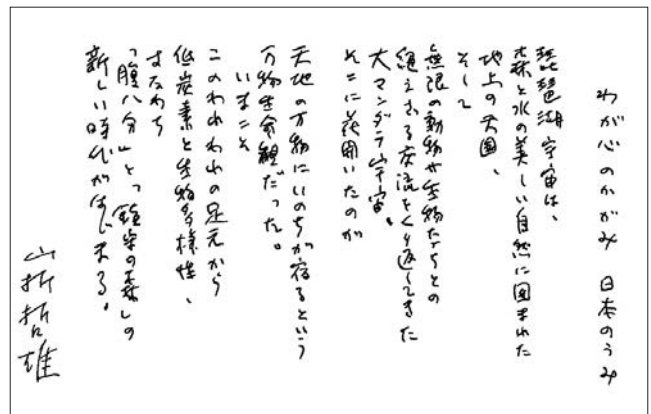 わが心のかがみ 日本のうみ
琵琶湖宇宙は、
森と水の美しい自然に囲まれた
地上の天国、
そして
無限の動物や生物たちとの
絶えざる交流をくり返してきた
大マンダラ宇宙。
そこに花開いたのが
天地の万物にいのちが宿るという
万物生命観だった。
いまこそ
このわれわれの足元から
低炭素と生物多様性、
すなわち
「腹八分」と「鎮守の森」の
新しい時代がはじまる。
山折哲雄